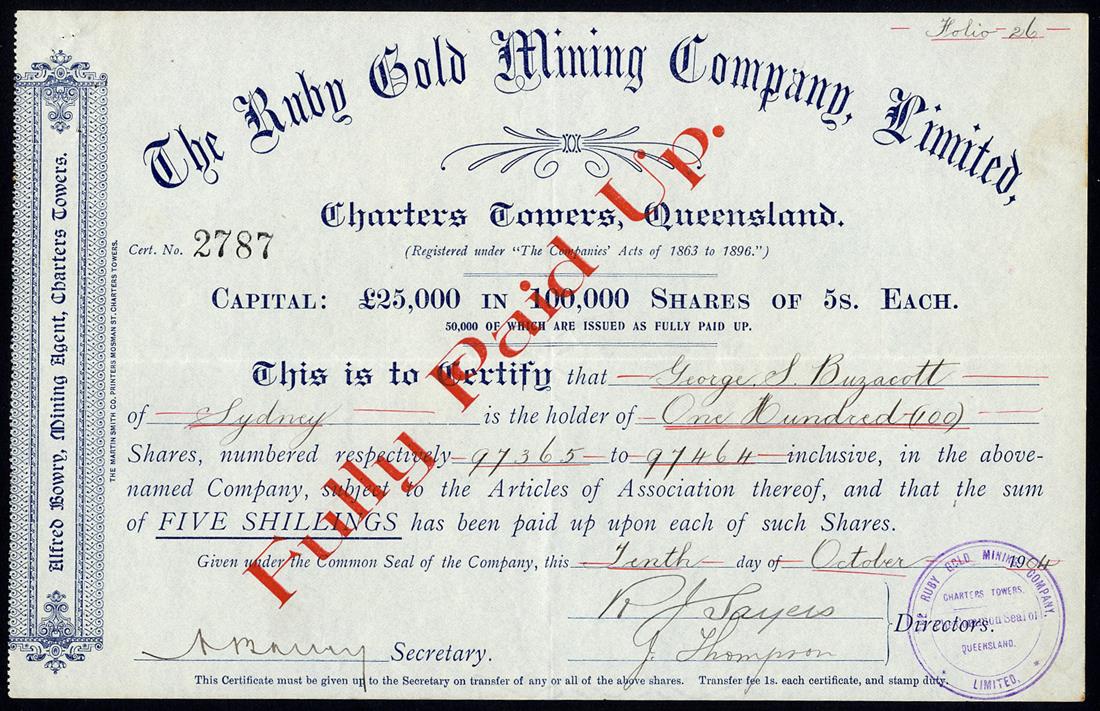 Folio 26
The Ruby Gold Mining Company, Limited,
Charters Towers, Queensland.
Cert. No. 2787
(Registered under "The Companies' Acts of 1863 to 1896.")
CAPITAL: £25,000 IN 100,000 SHARES OF 5S. EACH.
50,000 OF WHICH ARE ISSUED AS FULLY PAID UP.
This is to Certify that George S. Buzacott
of Sydney is the holder of One Hundred (100)
Shares, numbered respectively 97365 to 97464 inclusive, in the above-
named Company, subject to the Articles of Association thereof, and that the sum
of FIVE SHILLINGS has been paid up upon each of such Shares.
Given under the Common Seal of the Company, this Tenth day of October 1904
R J Sayers
J. Thompson
Directors.
Secretary.
This Certificate must be given up to the Secretary on transfer of any or all of the above shares. Transfer fee 1s. each certificate, and stamp duty.
Fully Paid Up.
Alfred Bowry, Mining Agent, Charters Towers.
THE MARTIN SMITH CO. PRINTERS MOSMAN ST. CHARTERS TOWERS.
THE RUBY GOLD MINING COMPANY. LIMITED,
CHARTERS TOWERS.
The Common Seal of
QUEENSLAND.